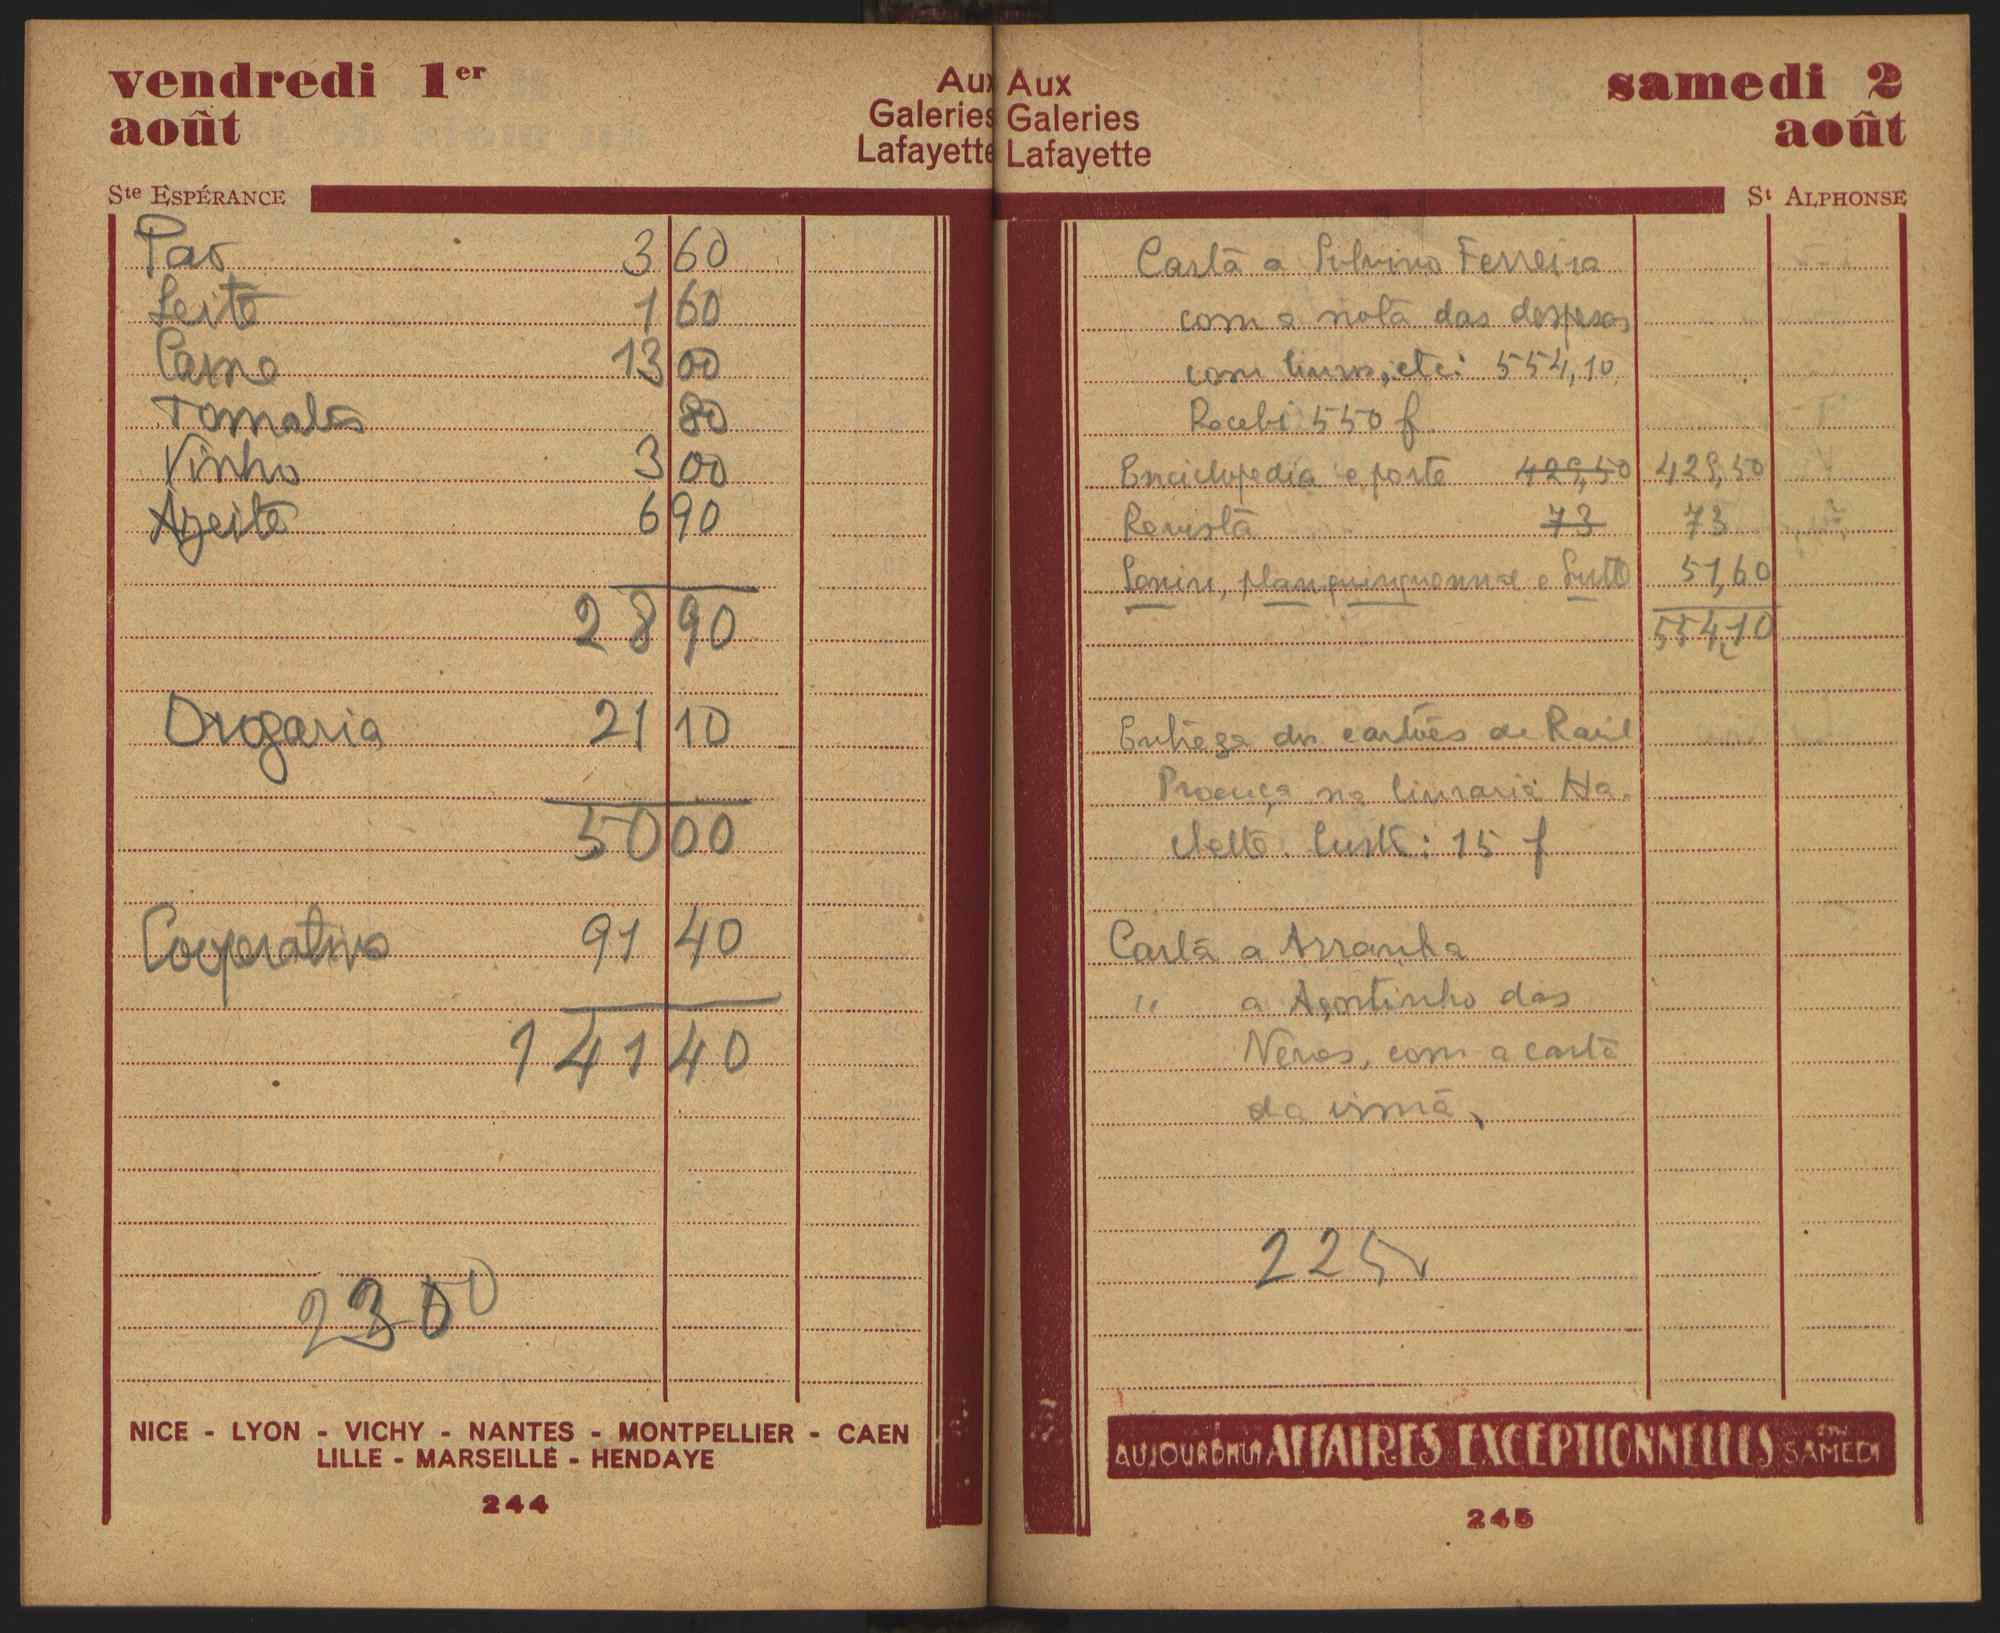 vendredi 1er
août
Aux
Galeries
Lafayette
Ste ESPÉRANCE
Pao 3 60
Leite 1 60
Carne 13 00
Tomates 80
Vinho 3 00
Azeite 6 90
28 90
Drogaria 21 10
50 00
Cooperativa 91 40
141 40
2300
NICE - LYON - VICHY - NANTES - MONTPELLIER - CAEN
LILLE - MARSEILLE - HENDAYE
244
Aux
Galeries
Lafayette
samedi 2
août
St ALPHONSE
Carta a Silvino Ferreira
com a nota das despesas
com livros, etc: 554,10
Recebi 550 f.
Enciclopedia e porte 429,50 429,50
Revista 73 73
Lenine, plan quinquennal e 51,60
554,10
Entrega dos cartões de Raúl
Proença na livraria Ha-
chette. Custo: 15 f
Carta a Arranha
" a Agostinho das
Neves, com a carta
da irmã.
225
AUJOURD'HUI AFFAIRES EXCEPTIONNELLES SAMEDI
245